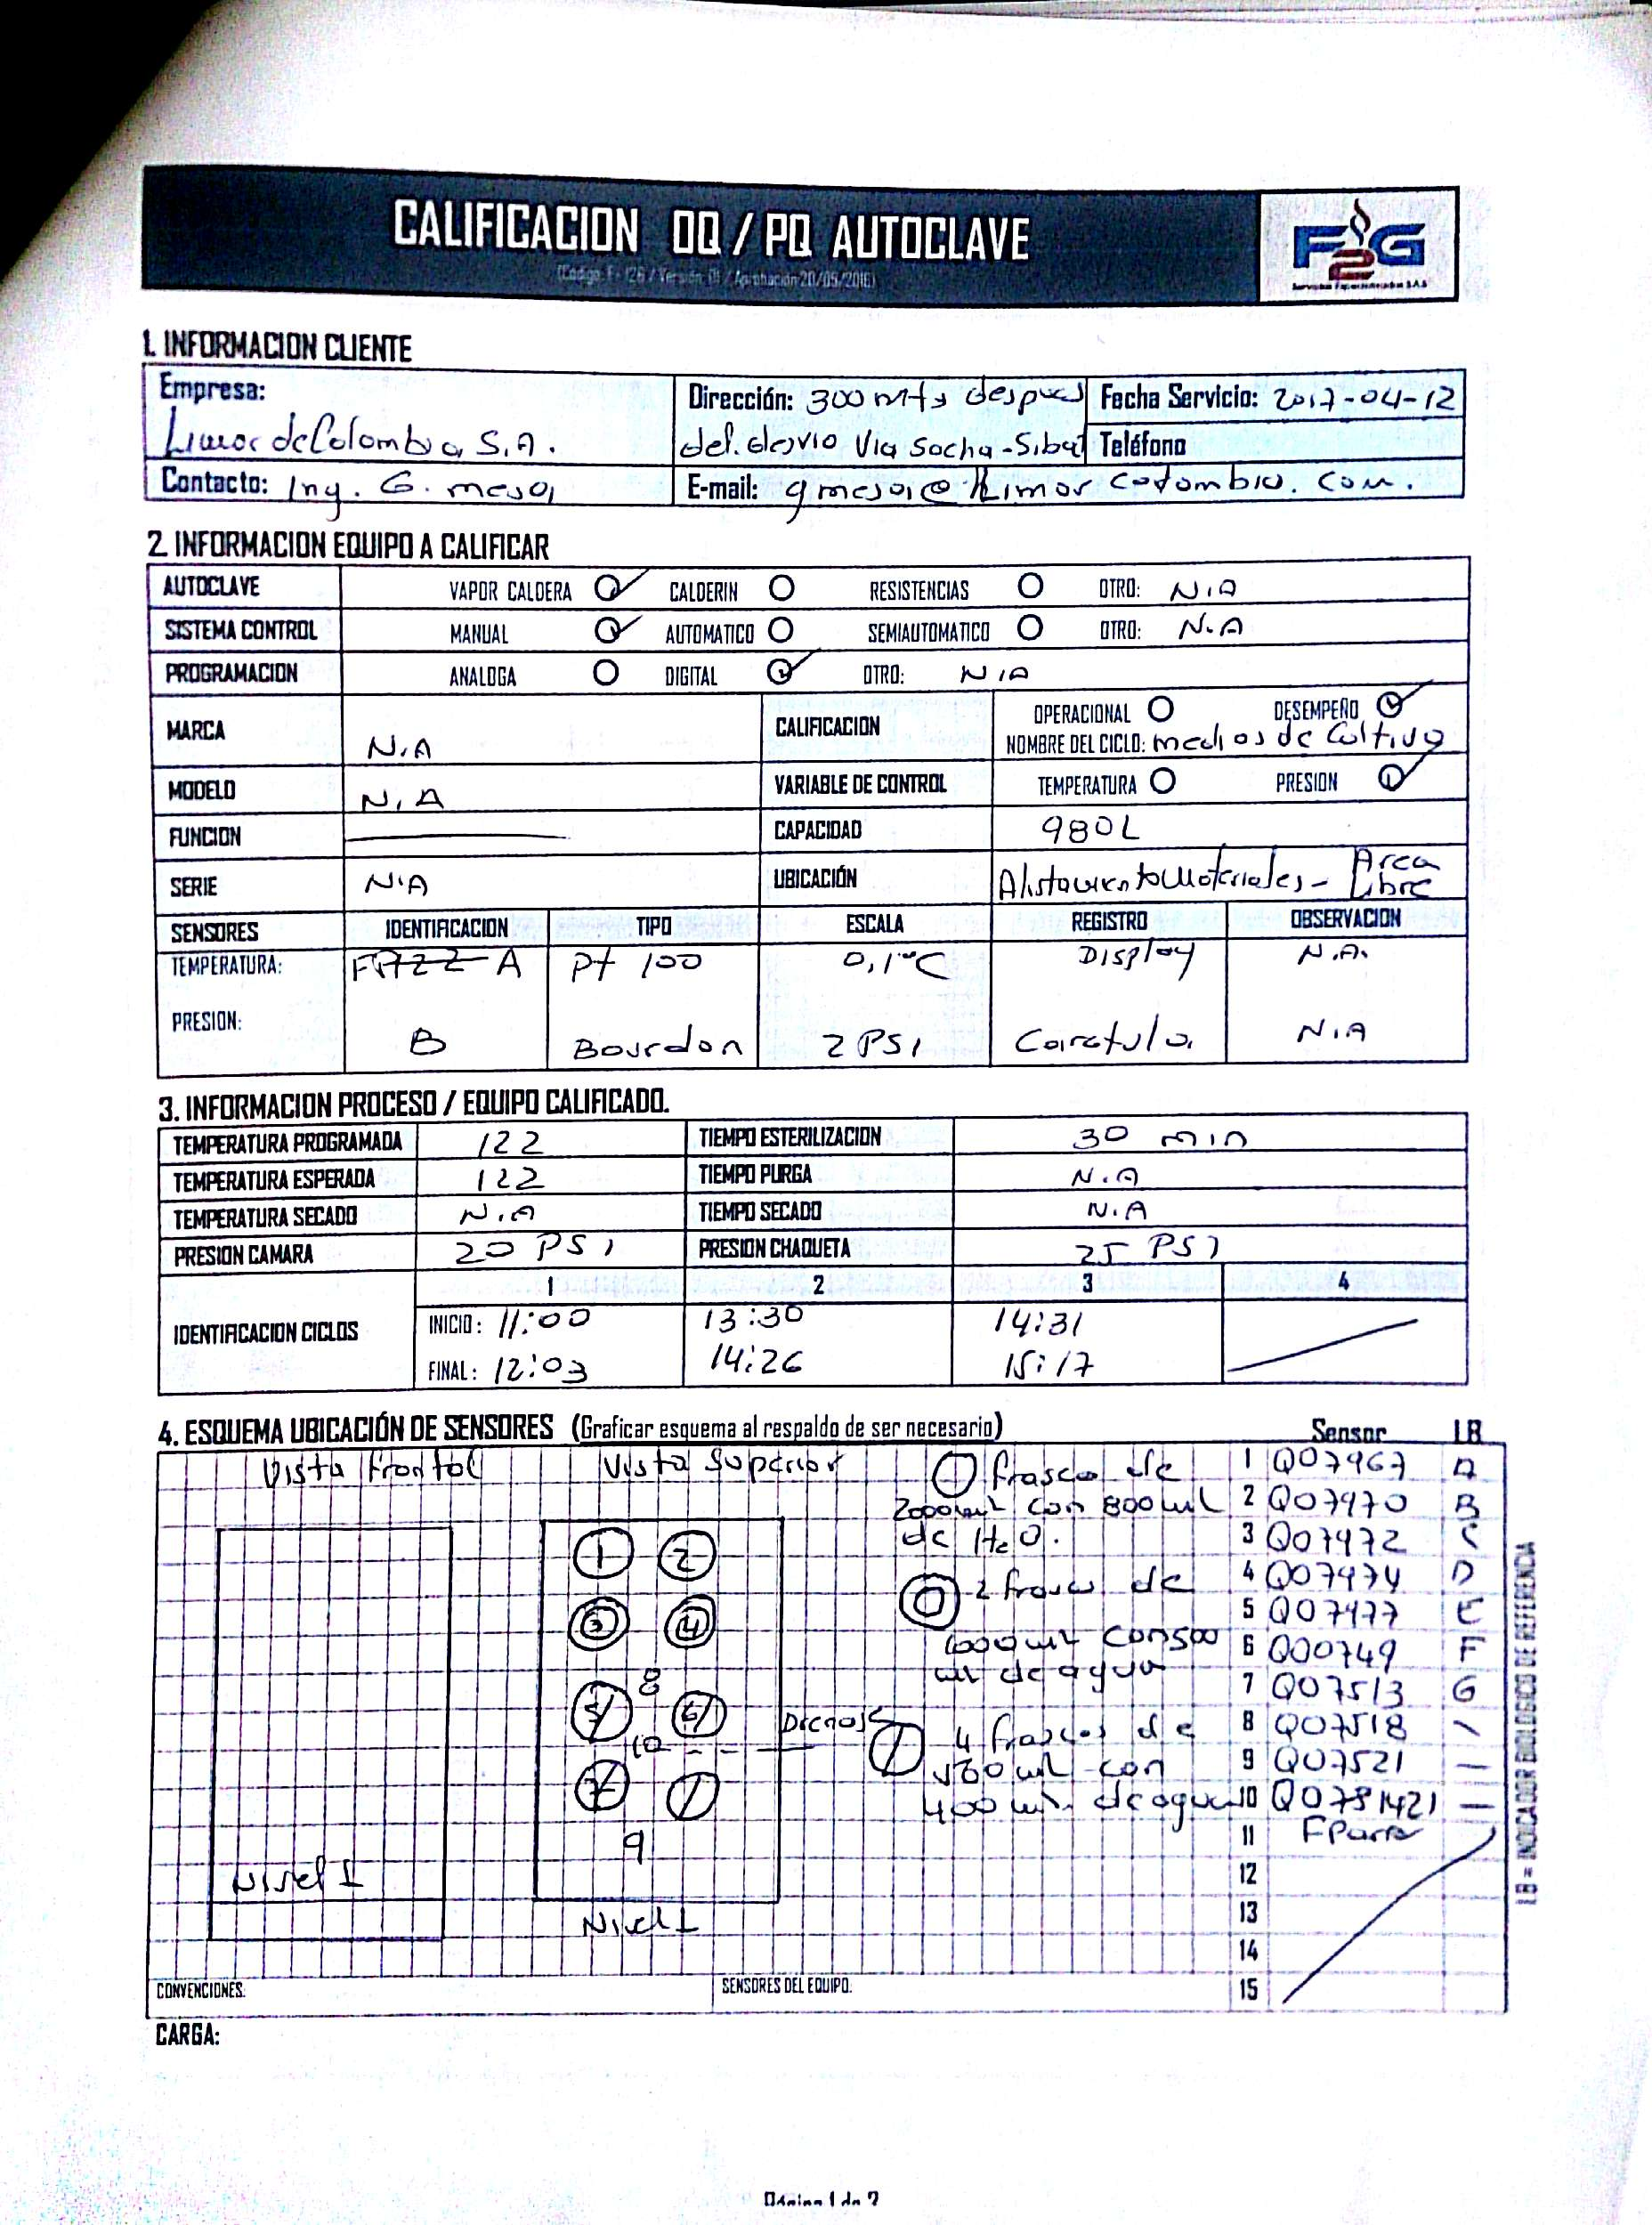 CALIFICACION OQ / PQ AUTOCLAVE
(Código F-126 / Versión 01 / Aprobación 20/05/2016)
F2G
Servicios Especializados S.A.S
1. INFORMACION CLIENTE
Empresa: Dirección: 300 Mts despues Fecha Servicio: 2017-04-12
Limor de Colombia S.A. del desvio Via Socha-Sibat Teléfono
Contacto: Ing. G. mesa E-mail: gmesa@limorcolombia.com.
2. INFORMACION EQUIPO A CALIFICAR
AUTOCLAVE VAPOR CALDERA CALDERIN RESISTENCIAS OTRO: N.A
SISTEMA CONTROL MANUAL AUTOMATICO SEMIAUTOMATICO OTRO: N.A
PROGRAMACION ANALOGA DIGITAL OTRO: N.A
MARCA N.A CALIFICACION OPERACIONAL DESEMPEÑO
NOMBRE DEL CICLO: medios de Cultivo
MODELO N.A VARIABLE DE CONTROL TEMPERATURA PRESION
FUNCION CAPACIDAD 980L
SERIE N.A UBICACIÓN Alistamiento Materiales - Area Libre
SENSORES IDENTIFICACION TIPO ESCALA REGISTRO OBSERVACION
TEMPERATURA: A Pt 100 0,1°C Display N.A.
PRESION: B Bourdon 2 PSI Caratula N.A
3. INFORMACION PROCESO / EQUIPO CALIFICADO.
TEMPERATURA PROGRAMADA 122 TIEMPO ESTERILIZACION 30 min
TEMPERATURA ESPERADA 122 TIEMPO PURGA N.A
TEMPERATURA SECADO N.A TIEMPO SECADO N.A
PRESION CAMARA 20 PSI PRESION CHAQUETA 25 PSI
1 2 3 4
IDENTIFICACION CICLOS INICIO: 11:00 13:30 14:31
FINAL: 12:03 14:26 15:17
4. ESQUEMA UBICACIÓN DE SENSORES (Graficar esquema al respaldo de ser necesario) Sensor I.B
Vista Frontal Vista Superior
frasco de
2000ml con 800ml
de H2O.
2 frascos de
1000ml con 500
ml de agua
4 frascos de
con
400 ml. de agua
1 2
3 4
8
5 6
10 Drenaje
7
9
Nivel 1
Nivel 1
1 Q07967 A
2 Q07970 B
3 Q07972 C
4 Q07974 D
5 Q07977 E
6 Q00749 F
7 Q07513 G
8 Q07518
9 Q07521
10 Q0781421
11 FParra
12
13
14
15
I.B = INDICADOR BIOLOGICO DE REFERENCIA
CONVENCIONES: SENSORES DEL EQUIPO:
CARGA:
Página 1 de 2